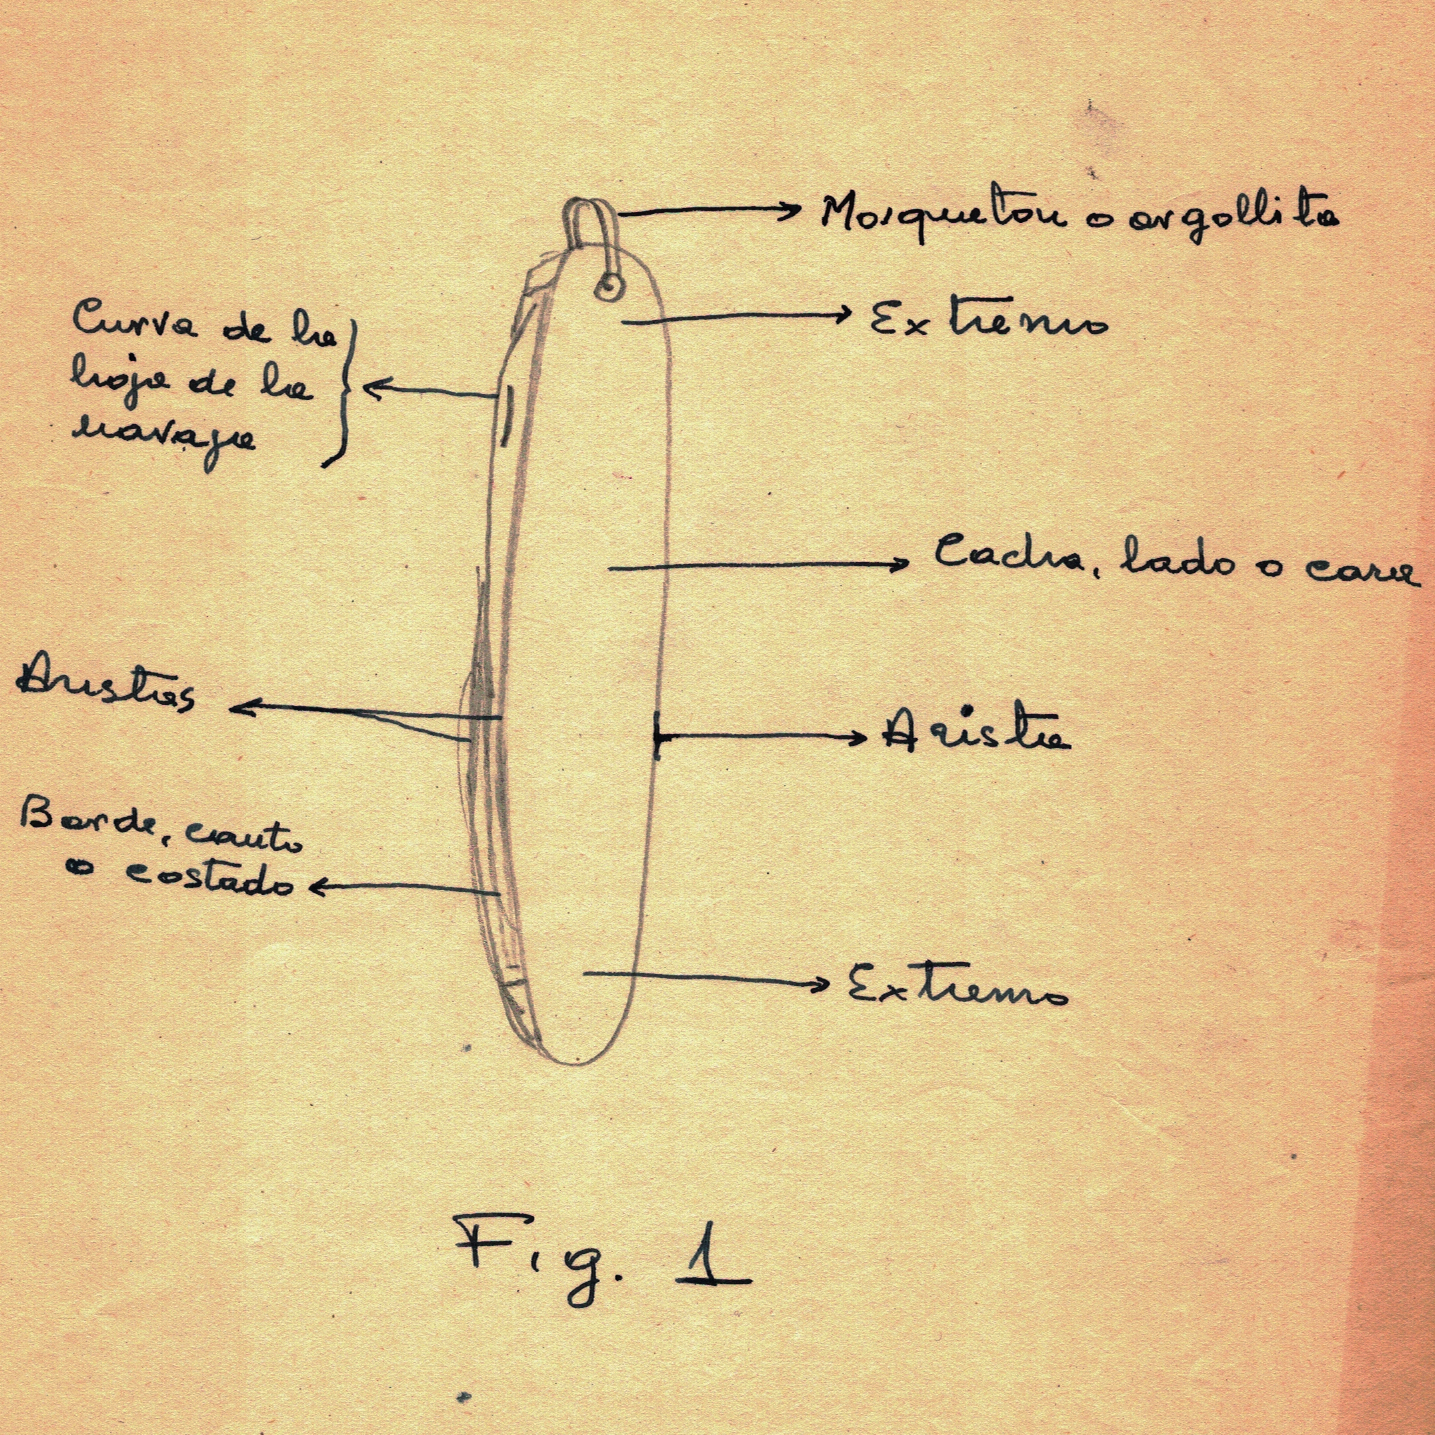 Mosqueton o argollita
Extremo
Curva de la
hoja de la
navaja
Cacha, lado o cara
Aristas
Arista
Borde, canto
o costado
Extremo
Fig. 1